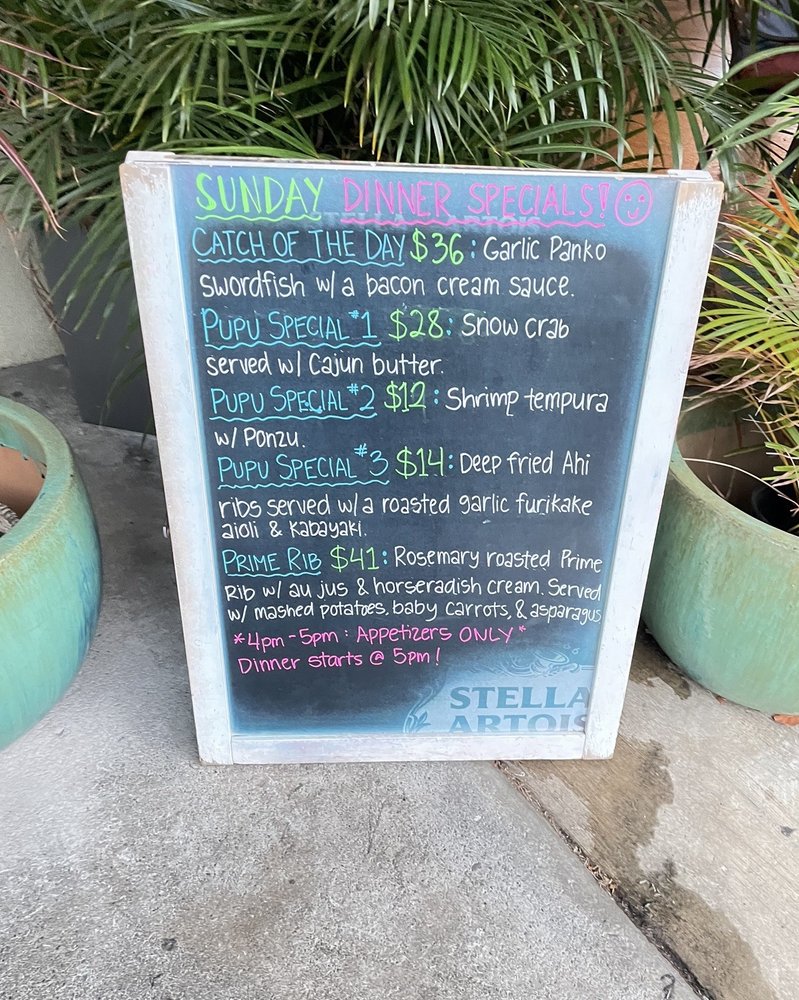 SUNDAY DINNER SPECIALS!
CATCH OF THE DAY $36: Garlic Panko
swordfish w/ a bacon cream sauce.
PUPU SPECIAL #1 $28: Snow crab
served w/ Cajun butter.
PUPU SPECIAL #2 $12: Shrimp tempura
w/ Ponzu.
PUPU SPECIAL #3 $14: Deep fried Ahi
ribs served w/ a roasted garlic furikake
aioli & Kabayaki.
PRIME RIB $41: Rosemary roasted Prime
Rib w/ au jus & horseradish cream. Served
w/ mashed potatoes, baby carrots, & asparagus
*4pm-5pm: Appetizers ONLY*
Dinner starts @ 5pm!
STELLA
ARTOIS